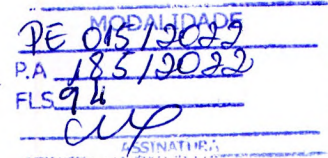 MODALIDADE
PE 015/2022
P.A 185/2022
FLS. 94
ASSINATURA